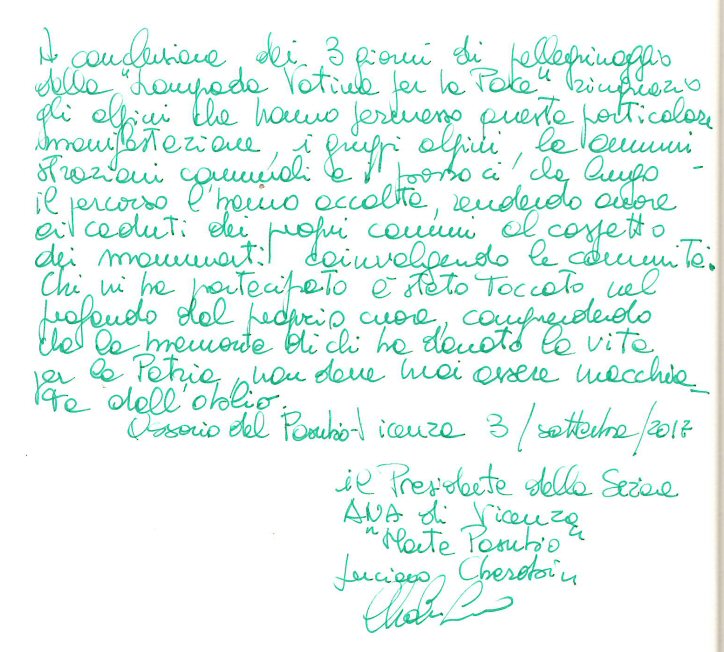 A conclusione dei 3 giorni di pellegrinaggio
della "Lampada Votiva per la Pace" ringrazio
gli alpini che hanno permesso questa particolare
manifestazione, i gruppi alpini, le ammini
strazioni comunali e i parroci, che lungo
il percorso l'hanno accolta, rendendo onore
ai caduti dei propri comuni al cospetto
dei monumenti coinvolgendo le comunità.
Chi vi ha partecipato è stato toccato nel
profondo del proprio cuore, comprendendo
che la memoria di chi ha donato la vita
per la Patria, non deve mai essere macchia-
ta dall'oblio.
Ossario del Pasubio-Vicenza 3/settembre/2017
il Presidente della Sezione
ANA di Vicenza
"Monte Pasubio"
Luciano Cherobin